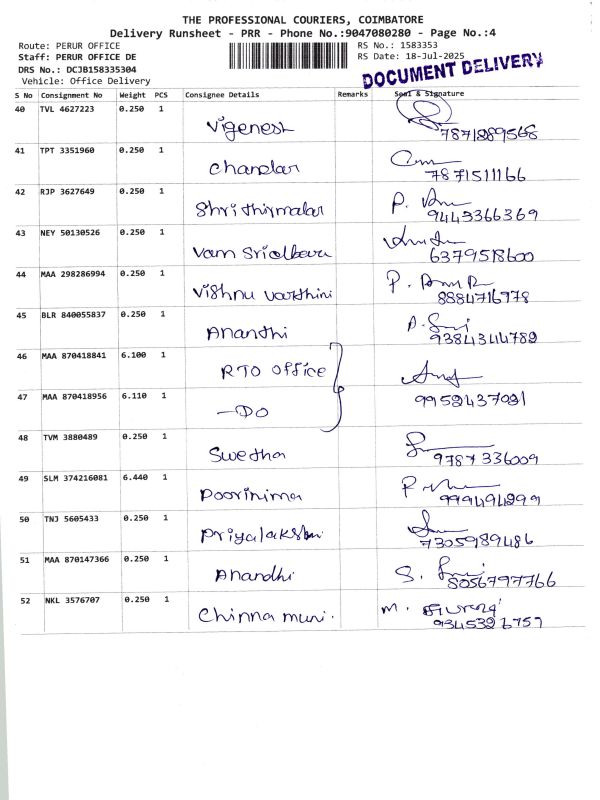 THE PROFESSIONAL COURIERS, COIMBATORE
Delivery Runsheet - PRR - Phone No.:9047080280 - Page No.:4
Route: PERUR OFFICE
RS No.: 1583353
Staff: PERUR OFFICE DE
RS Date: 18-Jul-2025
DRS No.: DCJB158335304
DOCUMENT DELIVERY
Vehicle: Office Delivery
S No Consignment No Weight PCS Consignee Details Remarks Seal & Signature
40 TVL 4627223 0.250 1 Vigenesh
41 TPT 3351960 0.250 1 Chandar 7871511166
42 RJP 3627649 0.250 1 Shrithirmalar 9443366369
43 NEY 50130526 0.250 1 6379518600
44 MAA 298286994 0.250 1 Vishnu varthini 8884716978
45 BLR 840055837 0.250 1 Ananthi 9384344789
46 MAA 870418841 6.100 1 RTO office
47 MAA 870418956 6.110 1 -DO 9952437091
48 TVM 3880489 0.250 1 Swetha 9787336009
49 SLM 374216081 6.440 1 Poorinima
50 TNJ 5605433 0.250 1 Priyalakshmi 7305989486
51 MAA 870147366 0.250 1 Anandhi S. 8056797766
52 NKL 3576707 0.250 1 Chinna muni. M. 9345326757